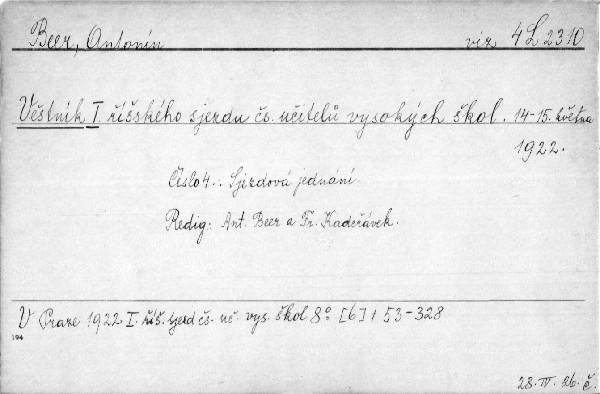 Beer, Antonín viz 4 L 2310
Věstník I. říšského sjezdu čs. učitelů vysokých škol. 14-15. května
1922.
Číslo 4.: Sjezdová jednání.
Redig: Ant. Beer a Fr. Kadeřávek.
V Praze 1922 I. říš. sjezd čs. uč. vys. škol 8° [6] + 53-328
194
28. IV. 26. č.